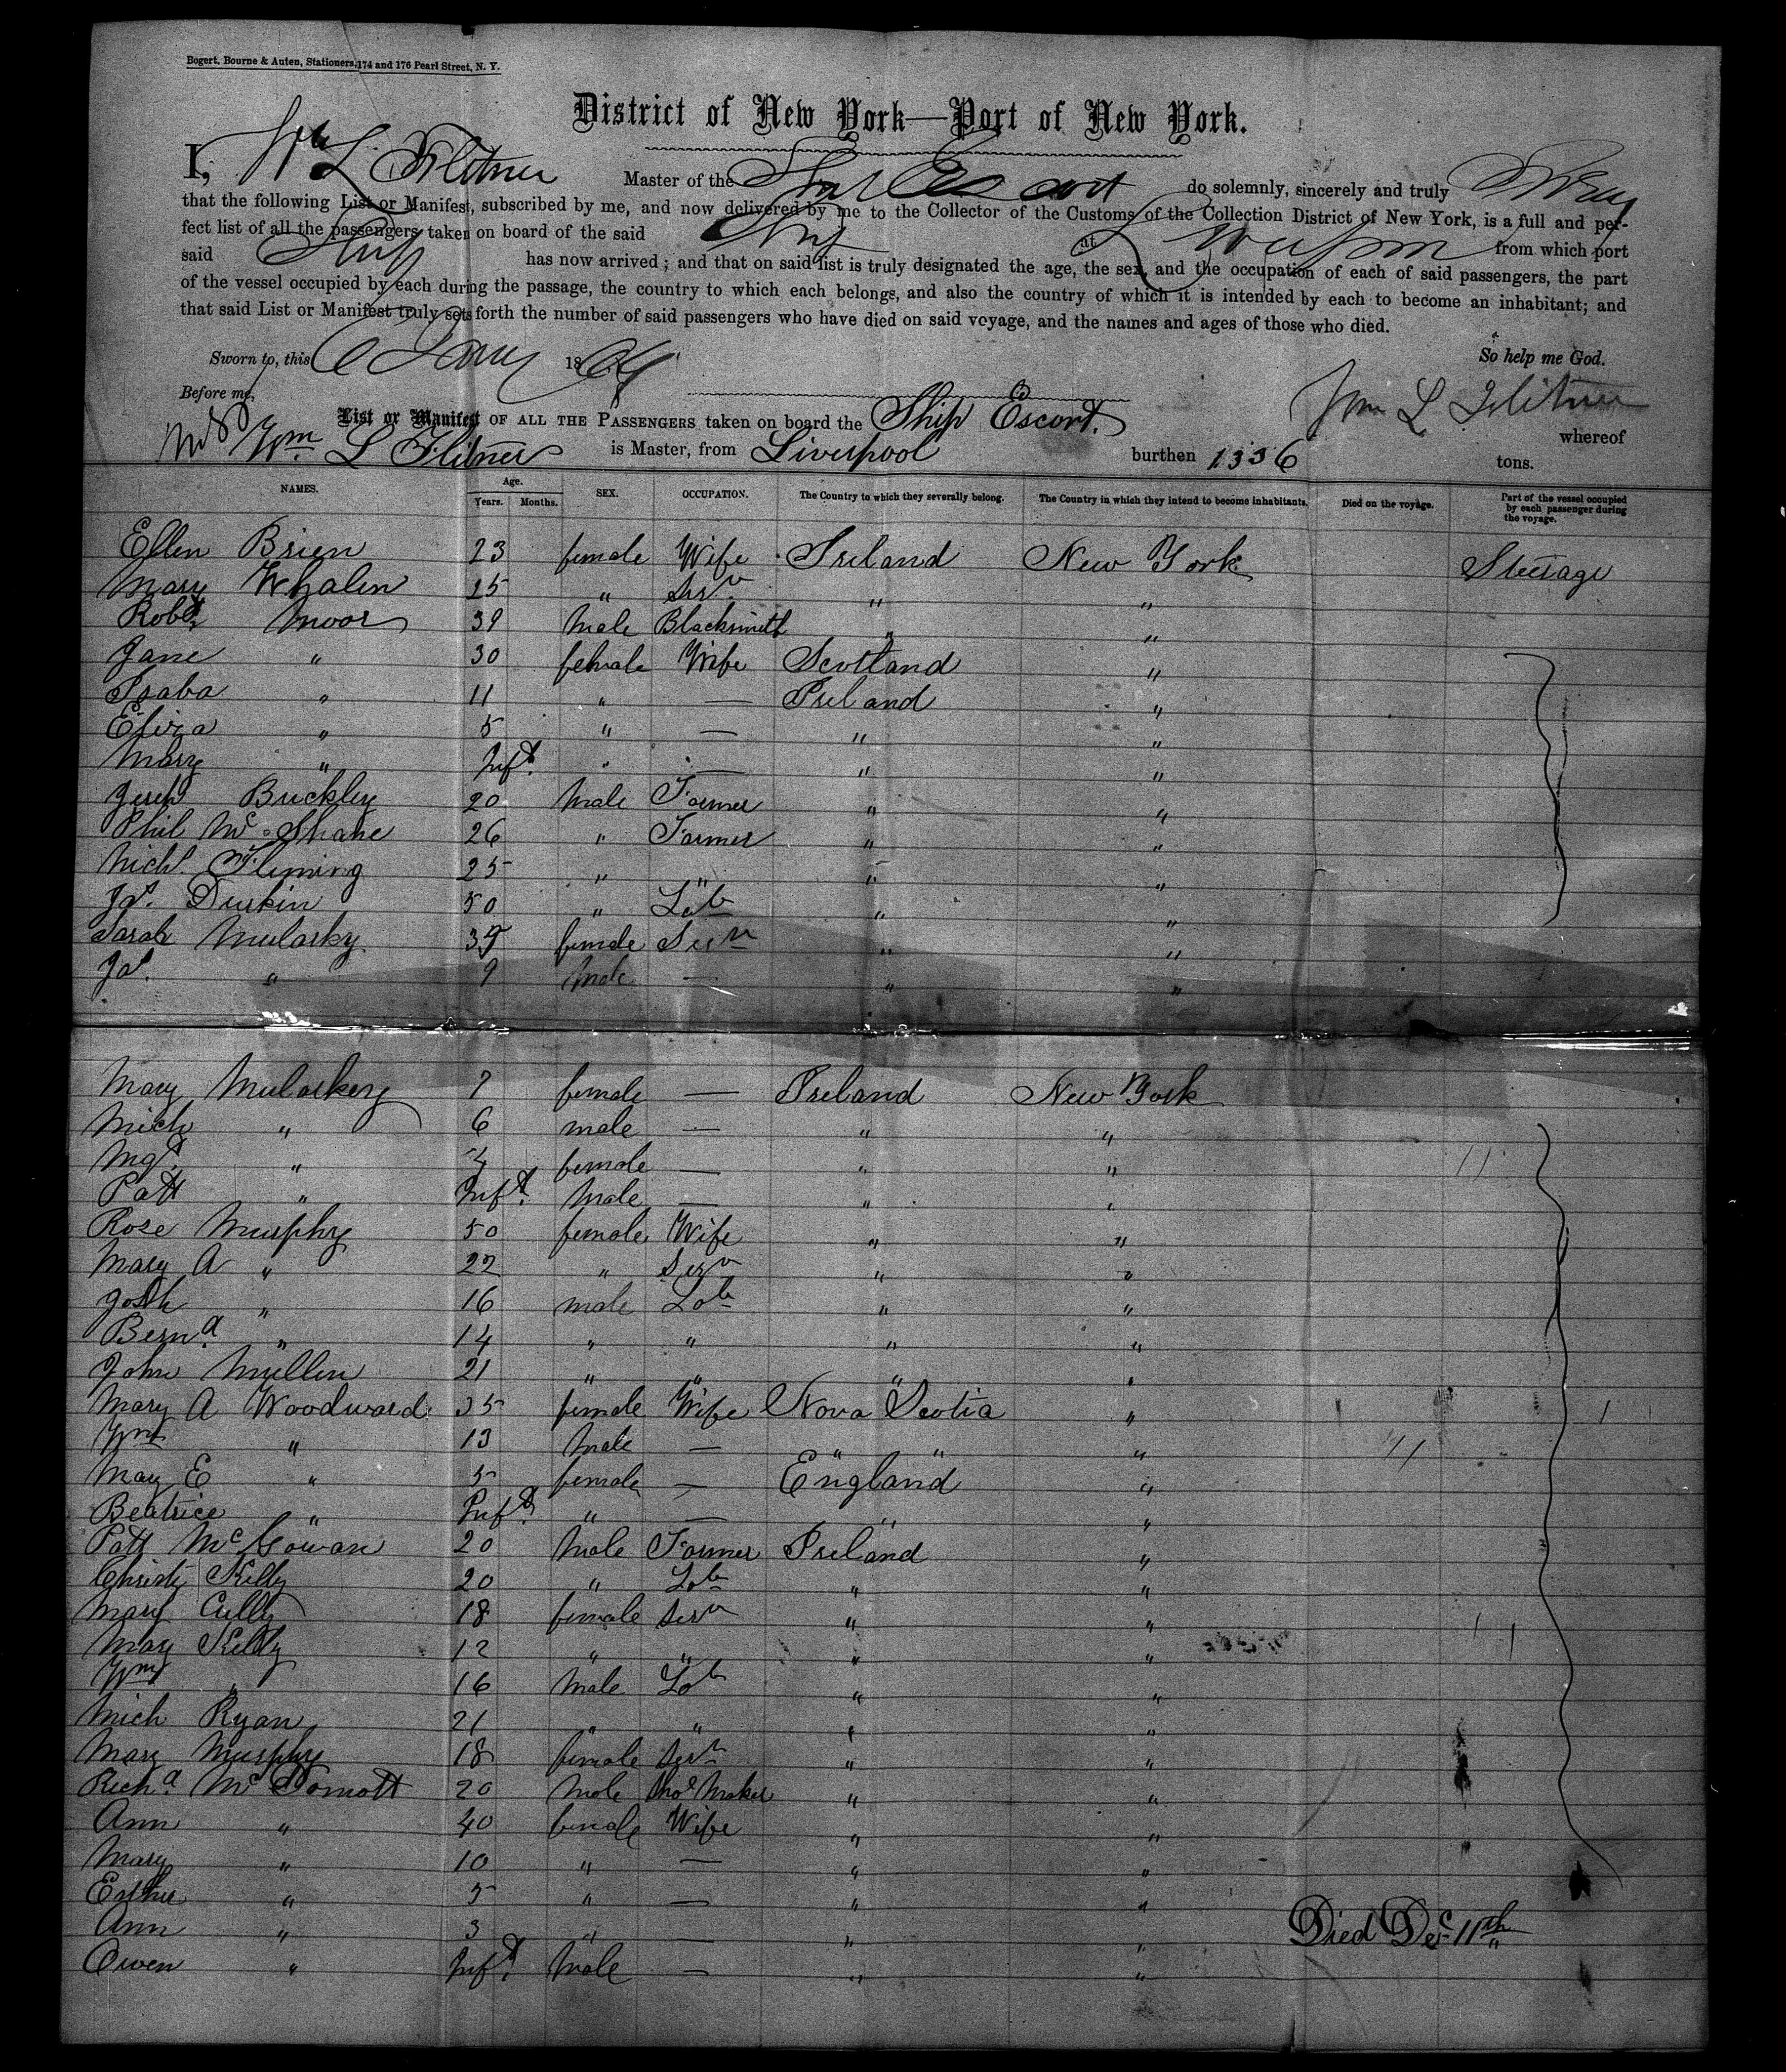 Bogert, Bourne & Auten, Stationers, 174 and 176 Pearl Street, N. Y.
District of New York—Port of New York.
I, Wm L Flitner Master of the Ship Escort do solemnly, sincerely and truly Swear
that the following List or Manifest, subscribed by me, and now delivered by me to the Collector of the Customs of the Collection District of New York, is a full and per-
fect list of all the passengers taken on board of the said Ship at Liverpool from which port
said Ship has now arrived; and that on said list is truly designated the age, the sex, and the occupation of each of said passengers, the part
of the vessel occupied by each during the passage, the country to which each belongs, and also the country of which it is intended by each to become an inhabitant; and
that said List or Manifest truly sets forth the number of said passengers who have died on said voyage, and the names and ages of those who died.
Sworn to, this 6 Jany 1864 So help me God.
Before me, Wm L Flitner
List or Manifest OF ALL THE PASSENGERS taken on board the Ship Escort. whereof
Wm. L Flitner is Master, from Liverpool burthen 1336 tons.
NAMES. Age. Years. Months. SEX. OCCUPATION. The Country to which they severally belong. The Country in which they intend to become inhabitants. Died on the voyage. Part of the vessel occupied by each passenger during the voyage.
Ellen Brien 23 female Wife Ireland New York Steerage
Mary Whalen 25 " Serv " "
Robt Moor 39 Male Blacksmith " "
Jane " 30 female Wife Scotland "
Isaba " 11 " — Ireland "
Eliza " 5 " — " "
Mary " Inft. " — " "
Buckley 20 Male Farmer " "
Phil Mc Shane 26 " Farmer " "
Michl. Fleming 25 " " " "
Jas. Durkin 50 " Lab " "
Sarah Mularky 39 female Serv " "
Jas. " 9 Male — " "
Mary Mularkey 7 female — Ireland New York
Mich " 6 male — " "
Mgt. " female — " "
Patt " Inft. Male — " "
Rose Murphy 50 female Wife " "
Mary A " 22 " Serv " "
Josh " 16 male Lab " "
Bernd. " 14 " " " "
John Mullen 21 " " " "
Mary A Woodward 35 female Wife Nova Scotia " 1
Wm " 13 Male — " " "
May E " 5 female — England "
Beatrice " Inft. " — " "
Patt McGowan 20 Male Farmer Ireland "
Christy Kelly 20 " Lab " "
Mary Cully 18 female Serv " "
May Kelly 12 " " " "
Wm " 16 Male Lab " "
Mich Ryan 21 " " " "
Mary Murphy 18 female Serv " "
Richd. McDomott 20 Male Shoe Maker " "
Ann " 40 female Wife " "
Mary " 10 " — " "
Esther " 5 " — " "
Ann " 3 " — " " Died Dec 11th
Owen " Inft. Male — " "